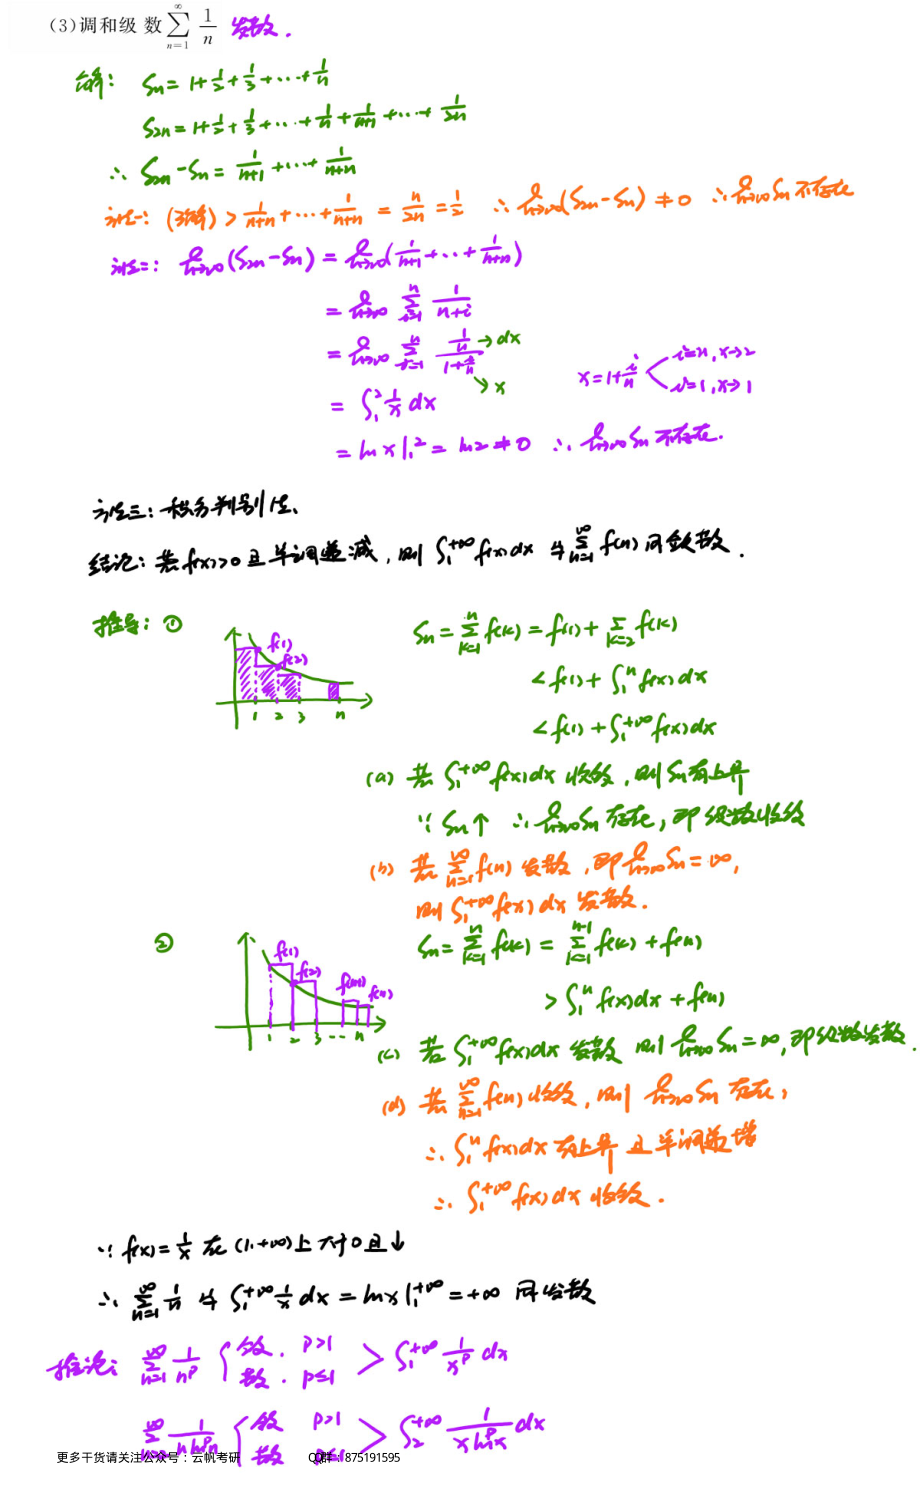 (3)调和级数 $\sum_{n=1}^{\infty} \frac{1}{n}$ 发散.
解: $S_n = 1+\frac{1}{2}+\frac{1}{3}+\cdots+\frac{1}{n}$
$S_{2n} = 1+\frac{1}{2}+\frac{1}{3}+\cdots+\frac{1}{n}+\frac{1}{n+1}+\cdots+\frac{1}{2n}$
∴ $S_{2n}-S_n = \frac{1}{n+1}+\cdots+\frac{1}{n+n}$
方法一: (放缩) $> \frac{1}{n+n}+\cdots+\frac{1}{n+n} = \frac{n}{2n} = \frac{1}{2}$ ∴ $\lim_{n\to\infty}(S_{2n}-S_n) \neq 0$ ∴ $\lim_{n\to\infty} S_n$ 不存在
方法二: $\lim_{n\to\infty}(S_{2n}-S_n) = \lim_{n\to\infty}(\frac{1}{n+1}+\cdots+\frac{1}{n+n})$
$= \lim_{n\to\infty} \sum_{i=1}^{n} \frac{1}{n+i}$
$= \lim_{n\to\infty} \sum_{i=1}^{n} \frac{\frac{1}{n}}{1+\frac{i}{n}}$ → dx → x
$x = 1+\frac{i}{n}$ i=n, x→2 i=1, x→1
$= \int_1^2 \frac{1}{x} dx$
$= \ln x |_1^2 = \ln 2 \neq 0$ ∴ $\lim_{n\to\infty} S_n$ 不存在.
方法三: 积分判别法
结论: 若 f(x)>0 且单调递减, 则 $\int_1^{+\infty} f(x)dx$ 与 $\sum_{n=1}^{\infty} f(n)$ 同敛散.
推导: ①
f(1)
f(2)
1 2 3 n
$S_n = \sum_{k=1}^{n} f(k) = f(1)+\sum_{k=2} f(k)$
$< f(1)+\int_1^n f(x)dx$
$< f(1)+\int_1^{+\infty} f(x)dx$
(a) 若 $\int_1^{+\infty} f(x)dx$ 收敛, 则 $S_n$ 有上界
∵ $S_n$↑ ∴ $\lim_{n\to\infty} S_n$ 存在, 即级数收敛
(b) 若 $\sum_{n=1}^{\infty} f(n)$ 发散, 即 $\lim_{n\to\infty} S_n = \infty$,
则 $\int_1^{+\infty} f(x)dx$ 发散.
②
f(1)
f(2)
f(n-1)
f(n)
1 2 3 ... n
$S_n = \sum_{k=1}^{n} f(k) = \sum_{k=1}^{n-1} f(k)+f(n)$
$> \int_1^n f(x)dx + f(n)$
(c) 若 $\int_1^{+\infty} f(x)dx$ 发散 则 $\lim_{n\to\infty} S_n = \infty$, 即级数发散.
(d) 若 $\sum_{n=1}^{\infty} f(n)$ 收敛, 则 $\lim_{n\to\infty} S_n$ 存在,
∴ $\int_1^n f(x)dx$ 有上界且单调递增
∴ $\int_1^{+\infty} f(x)dx$ 收敛.
∵ $f(x) = \frac{1}{x}$ 在 (1,+∞) 上大于0且↓
∴ $\sum_{n=1}^{\infty} \frac{1}{n}$ 与 $\int_1^{+\infty} \frac{1}{x} dx = \ln x |_1^{+\infty} = +\infty$ 同发散
推论: $\sum_{n=1}^{\infty} \frac{1}{n^p}$ { 敛. p>1 散. p≤1 > $\int_1^{+\infty} \frac{1}{x^p} dx$
$\sum_{n=2}^{\infty} \frac{1}{n \ln^p n}$ { 敛 p>1 散 p≤1 > $\int_2^{+\infty} \frac{1}{x \ln^p x} dx$
更多干货请关注公众号:云帆考研 QQ群:875191595